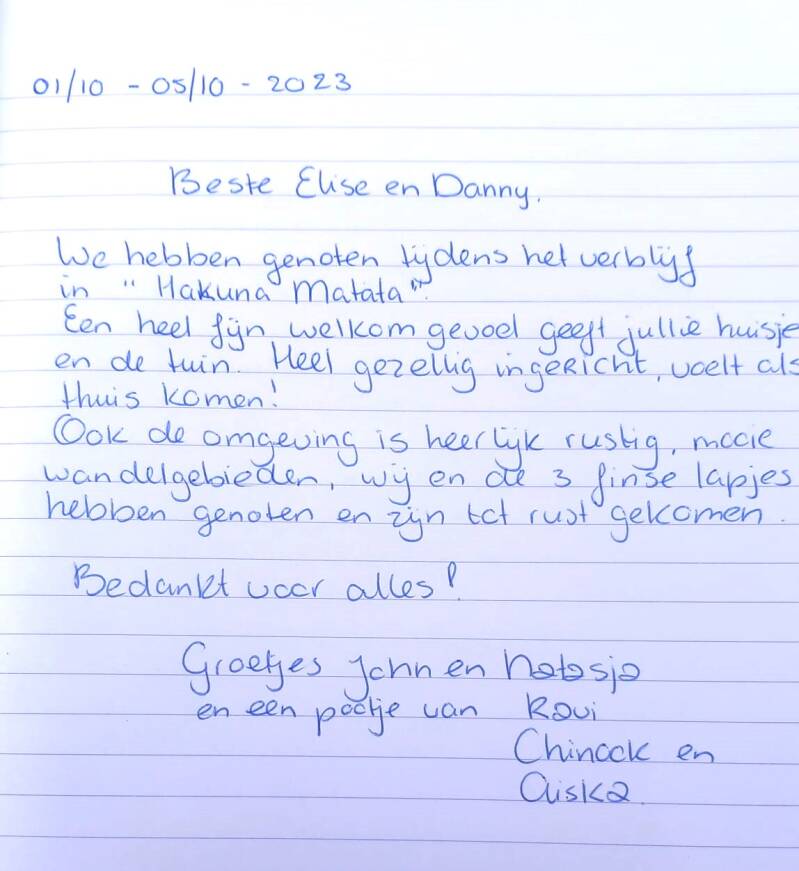 01/10 - 05/10 - 2023
Beste Elise en Danny,
We hebben genoten tijdens het verblijf
in "Hakuna Matata".
Een heel fijn welkom gevoel geeft jullie huisje
en de tuin. Heel gezellig ingericht, voelt als
thuis komen!
Ook de omgeving is heerlijk rustig, mooie
wandelgebieden, wij en de 3 finse lapjes
hebben genoten en zijn tot rust gekomen.
Bedankt voor alles!
Groetjes John en Natasja
en een pootje van Ravi
Chinook en
Aiska.